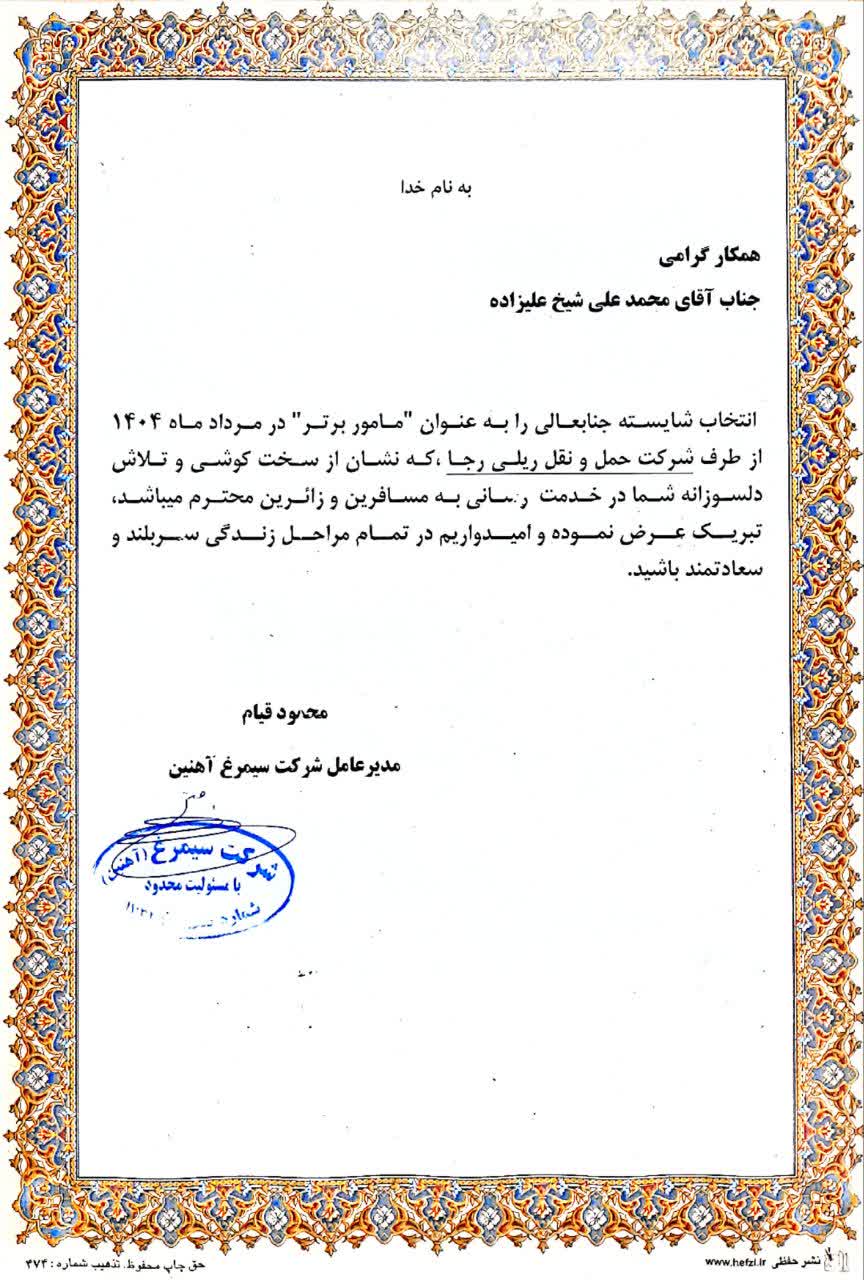 به نام خدا
همکار گرامی
جناب آقای محمد علی شیخ علیزاده
انتخاب شایسته جنابعالی را به عنوان "مامور برتر" در مرداد ماه ۱۴۰۴
از طرف شرکت حمل و نقل ریلی رجا ،که نشان از سخت کوشی و تلاش
دلسوزانه شما در خدمت رسانی به مسافرین و زائرین محترم میباشد،
تبریک عرض نموده و امیدواریم در تمام مراحل زندگی سربلند و
سعادتمند باشید.
محمود قیام
مدیرعامل شرکت سیمرغ آهنین
شرکت سیمرغ (آهنین)
با مسئولیت محدود
شماره
نشر حفظی www.hefzi.ir
حق چاپ محفوظ. تذهیب شماره : ۴۷۴